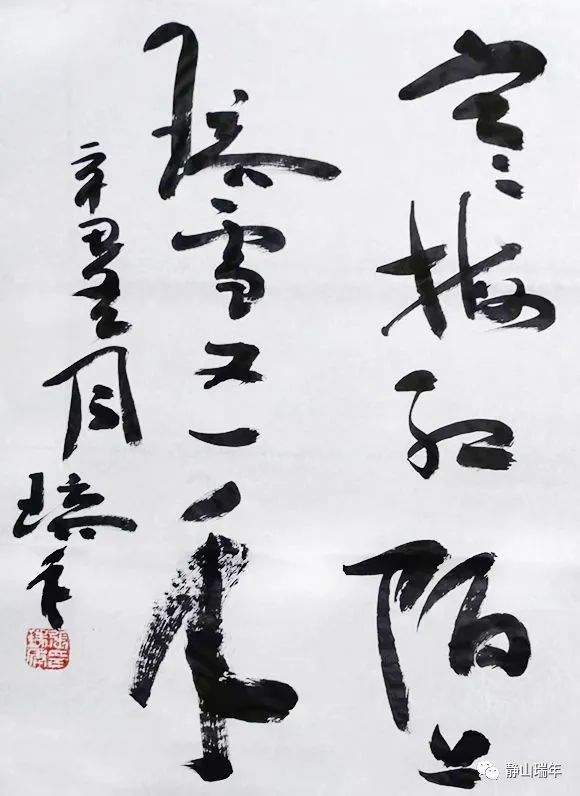 寒梅红陌上
瑞雪又一年
辛丑月瑞年
静山瑞年